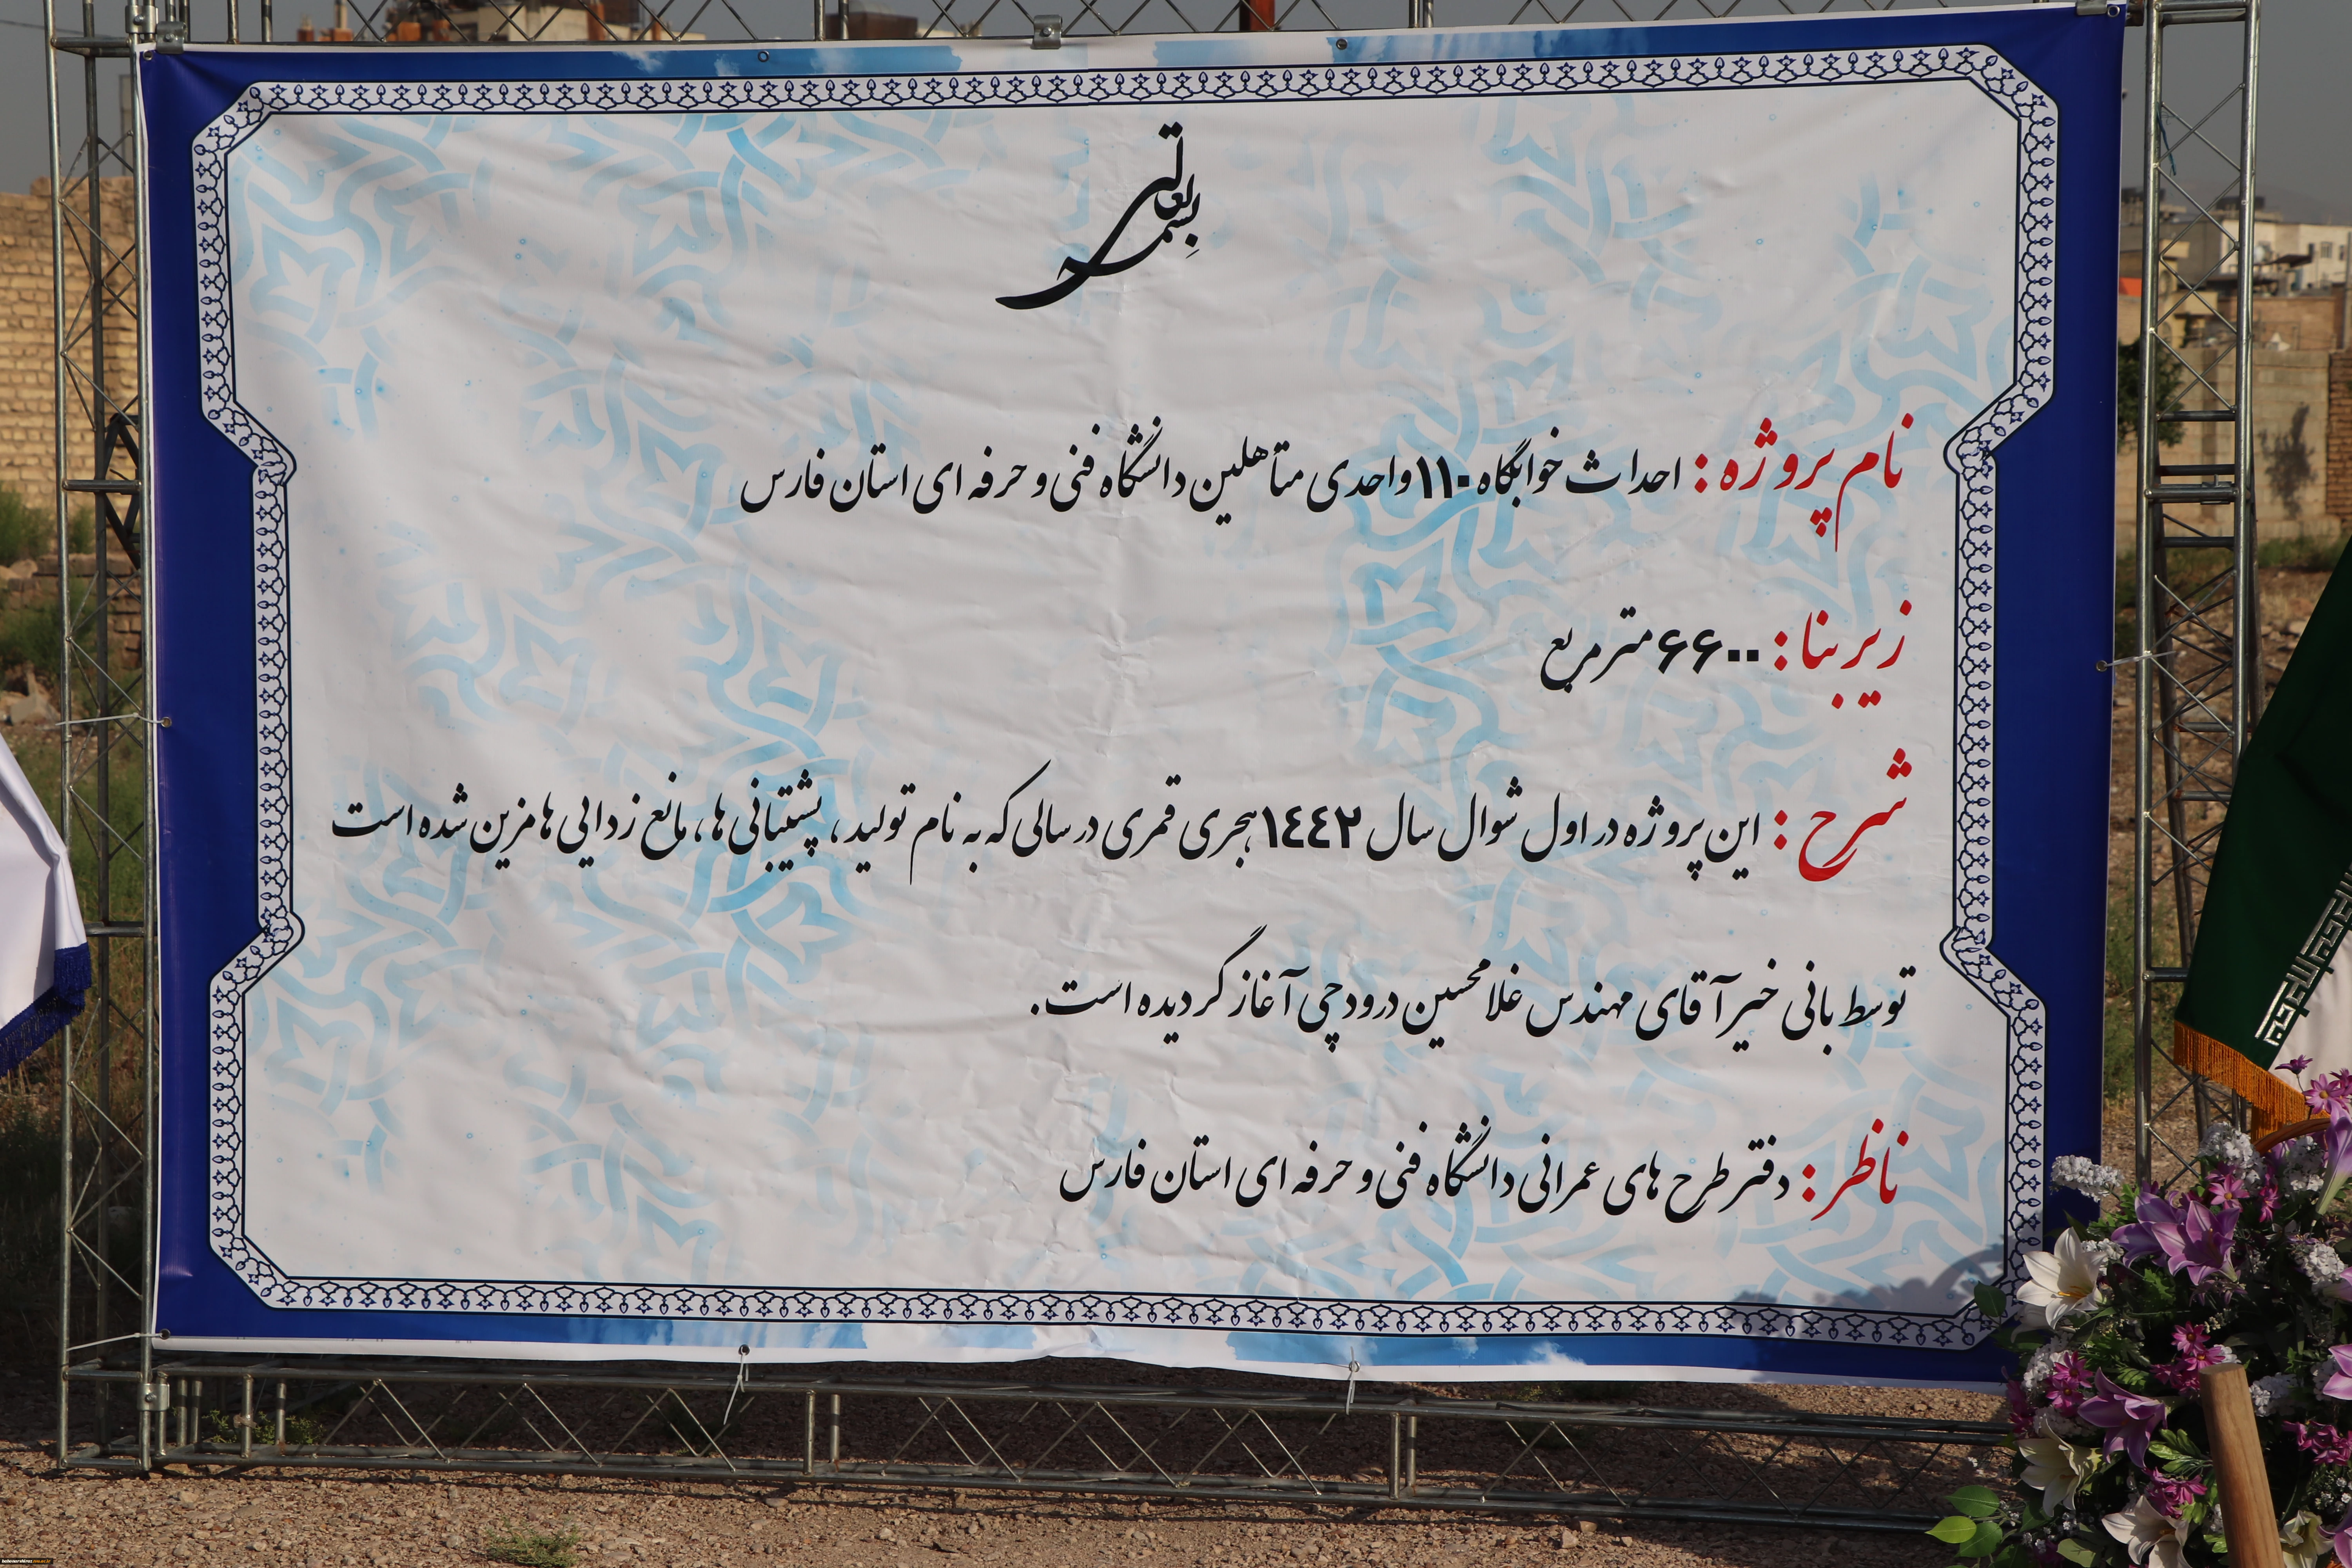 بسمه تعالی
نام پروژه : احداث خوابگاه ۱۱۰ واحدی متأهلین دانشگاه فنی و حرفه ای استان فارس
زیربنا : ۶۶۰۰ مترمربع
شرح : این پروژه در اول شوال سال ۱٤٤۲ هجری قمری در سالی که به نام تولید ، پشتیبانی ها ، مانع زدایی ها مزین شده است
توسط بانی خیر آقای مهندس غلامحسین درودچی آغاز گردیده است.
ناظر : دفتر طرح های عمرانی دانشگاه فنی و حرفه ای استان فارس